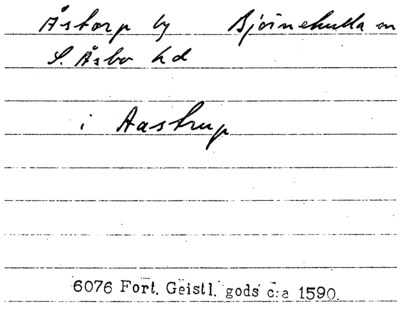 Åstorp by Björnekulla sn
S. Åsbo hd
i Aastrup
6076 Fort. Geistl. gods c:a 1590.